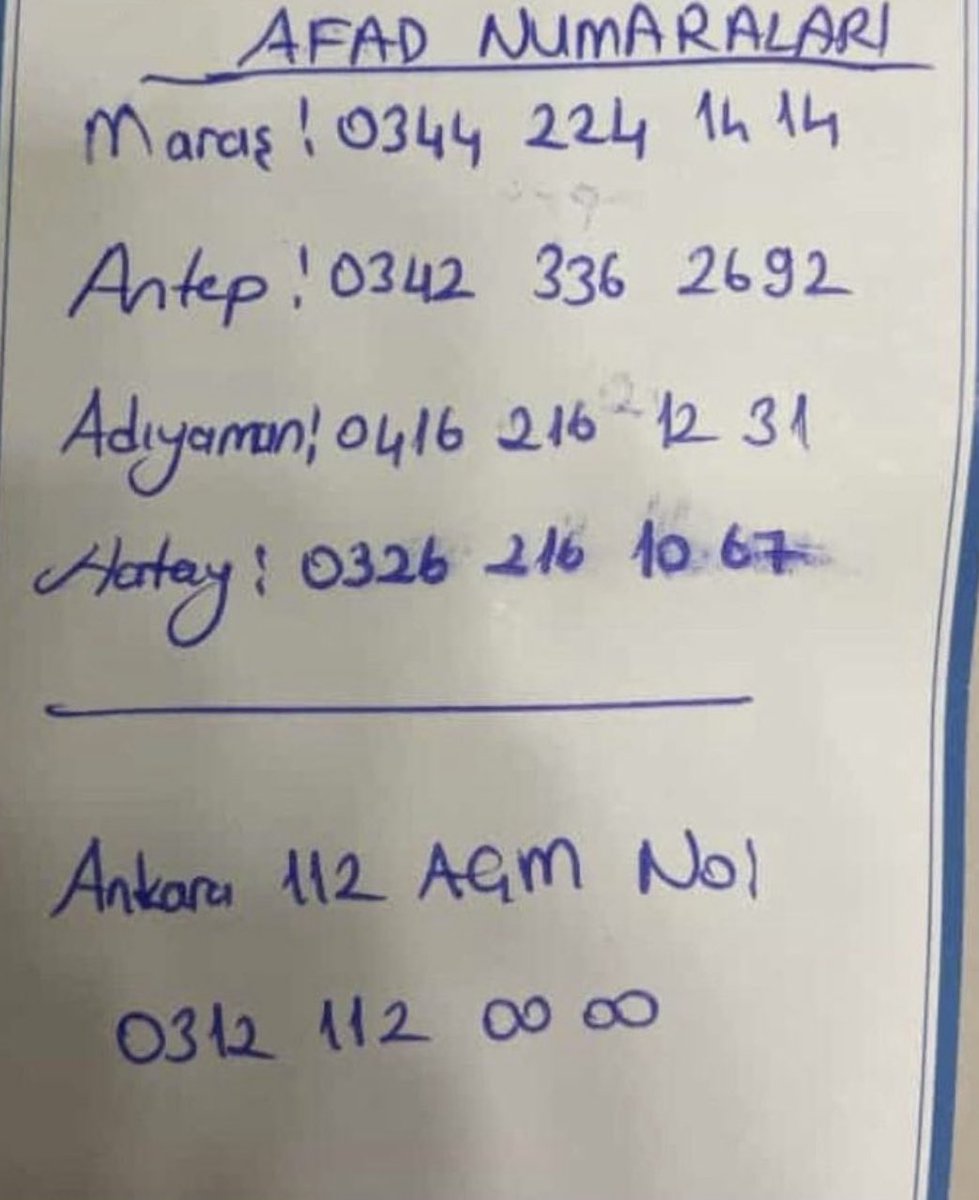 AFAD NUMARALARI
Maraş: 0344 224 14 14
Antep: 0342 336 2692
Adıyaman: 0416 216 12 31
Hatay: 0326 216 10 67
Ankara 112 AGM No:
0312 112 00 00